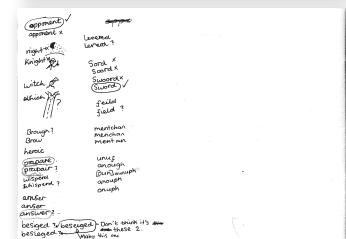 opponent ✓
oponent x
night x
Knight
witch
which ?
Brough ?
Brow
heroic
prapare
prapair ?
wisperd
whisperd ?
anser
answer ?
besiged ? beseiged - Don't think it's
besieaged these 2.
Maby this one
Levered
Levead ?
Sord x
Soard x
Swoord x
Sword ✓
feild
field ?
mentchan
menchan
mentan
unuf
anough
anouph
onuph